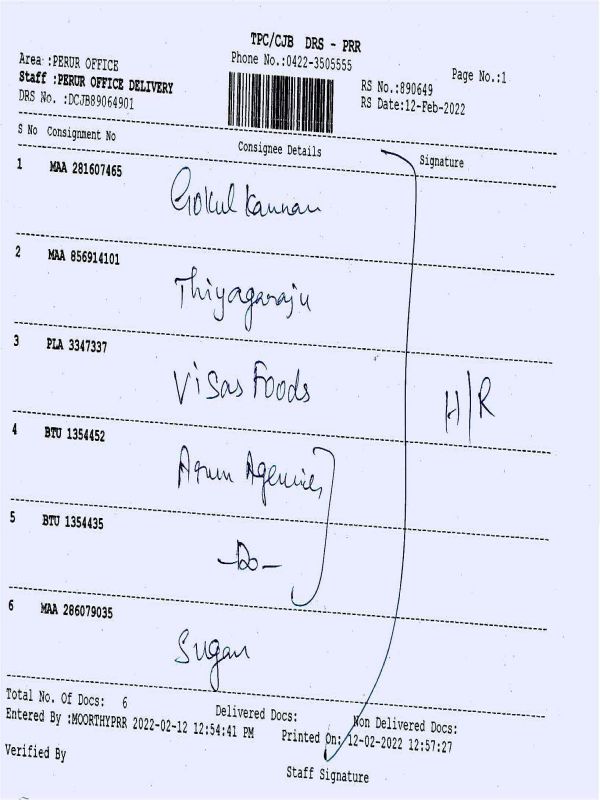 TPC/CJB DRS - PRR
Area :PERUR OFFICE Phone No.:0422-3505555 Page No.:1
Staff :PERUR OFFICE DELIVERY RS No.:890649
DRS No. :DCJB89064901 RS Date:12-Feb-2022
S No Consignment No Consignee Details Signature
1 MAA 281607465 Gokul Kannan
2 MAA 856914101 Thiyagaraju
3 PLA 3347337 Visas Foods
H/R
4 BTU 1354452 Arun Agencies
5 BTU 1354435 -Do-
6 MAA 286079035 Sugan
Total No. Of Docs: 6 Delivered Docs: Non Delivered Docs:
Entered By :MOORTHYPRR 2022-02-12 12:54:41 PM Printed On: 12-02-2022 12:57:27
Verified By Staff Signature